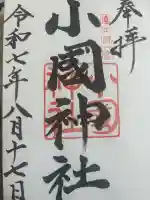 奉拝
小國神社
令和七年八月十七日